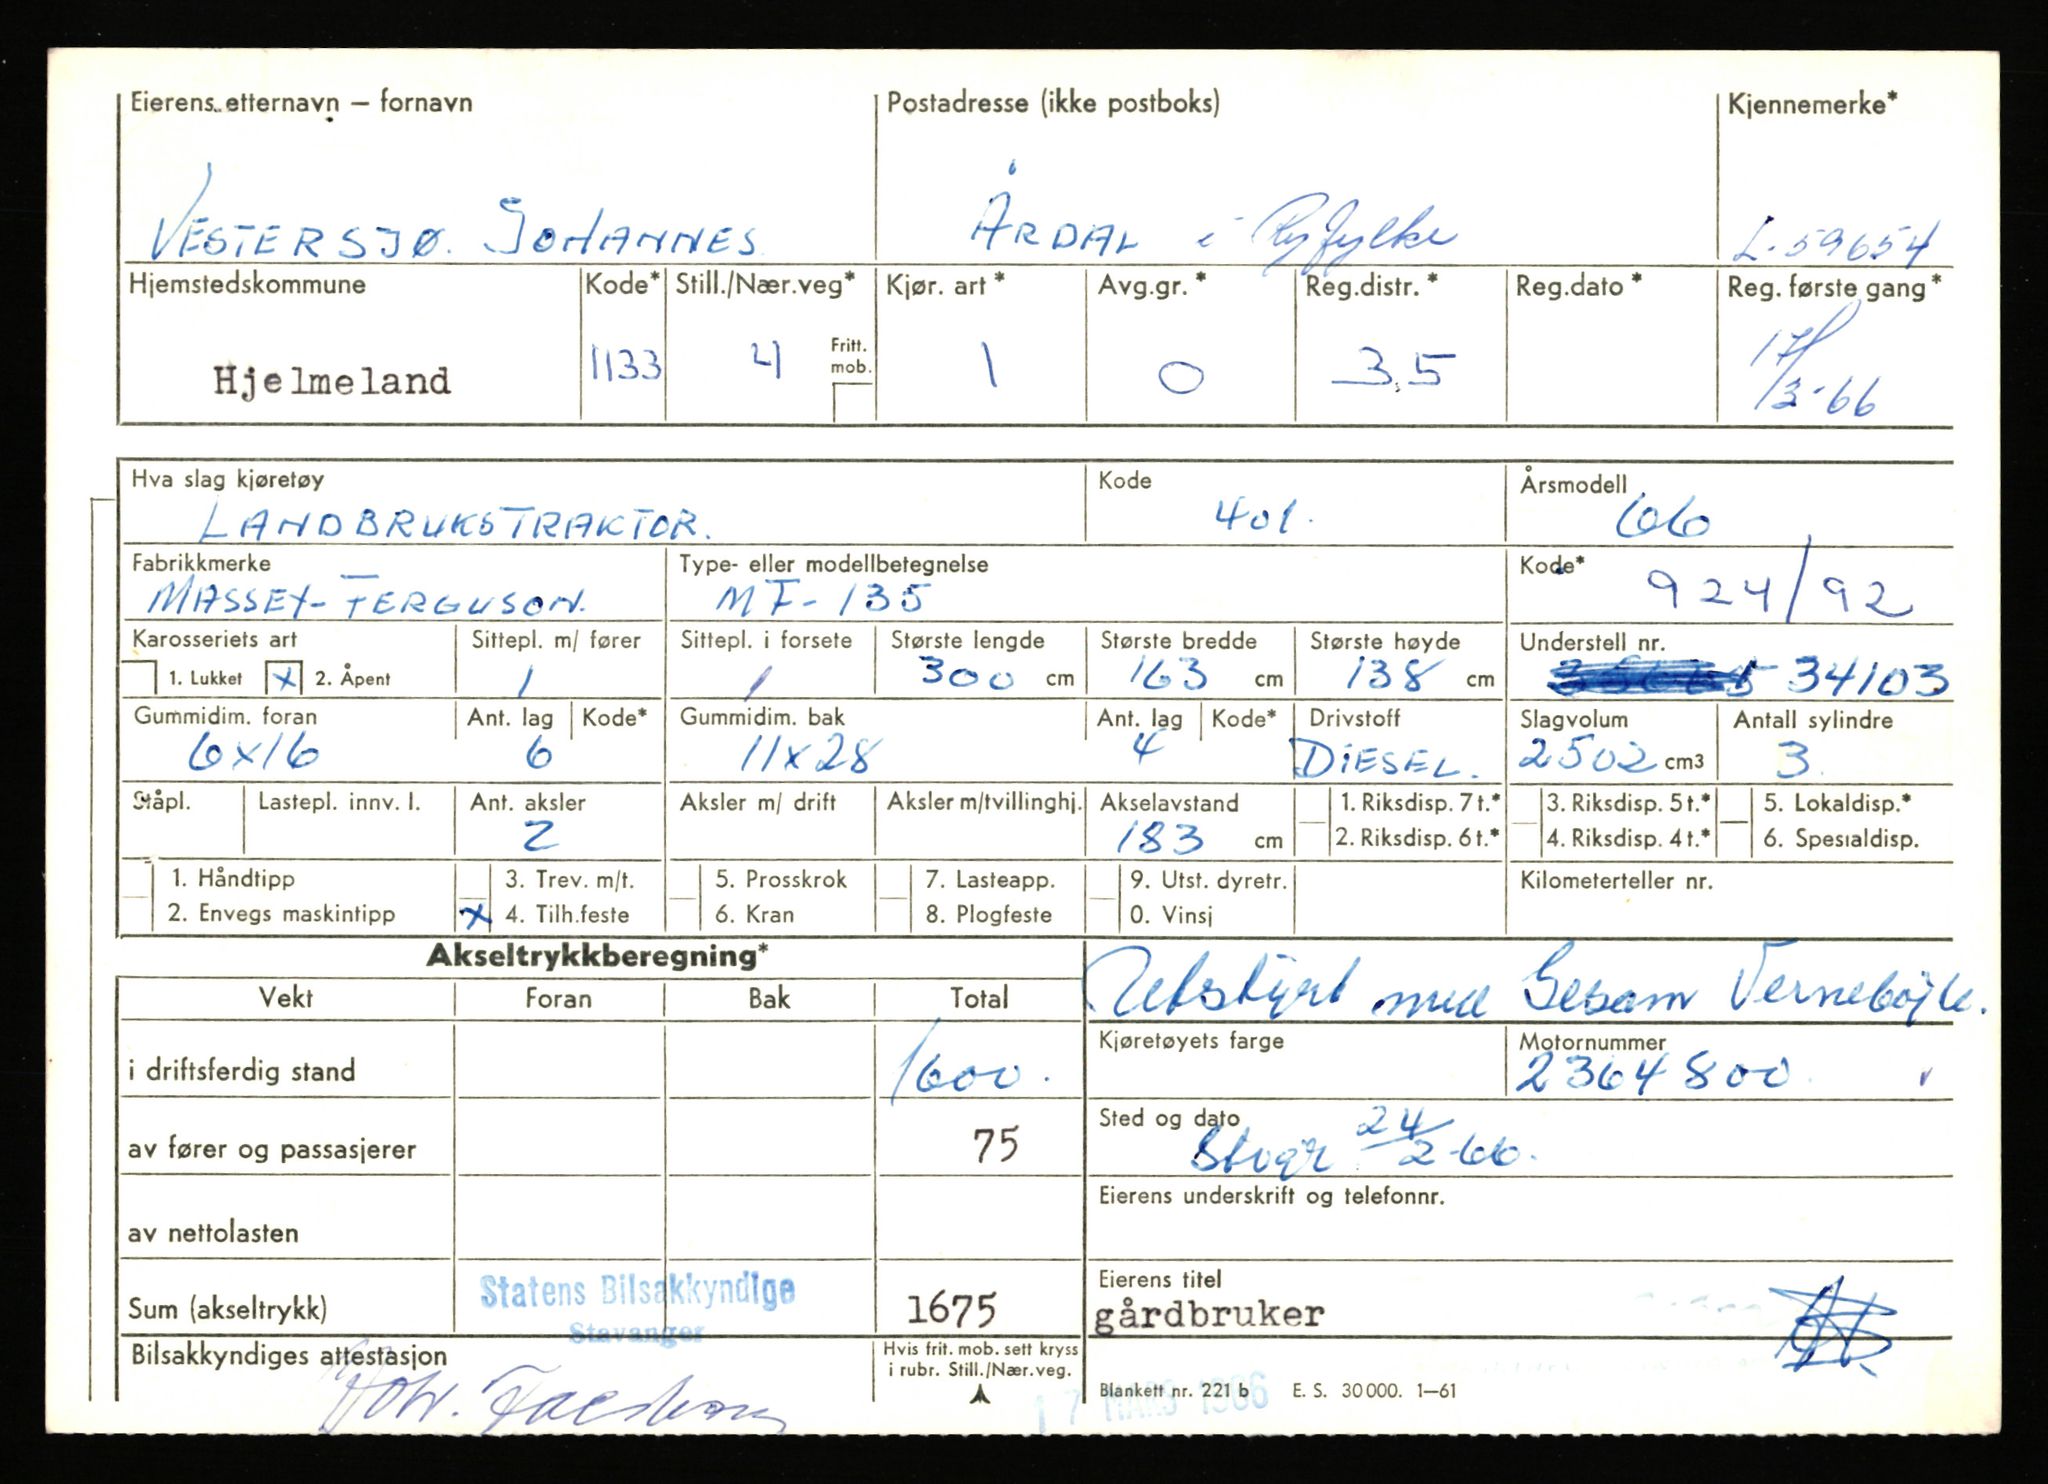 Eierens etternavn – fornavn Postadresse (ikke postboks) Kjennemerke*
VESTERSJØ. JOHANNES. ÅRDAL i Ryfylke L-59654
Hjemstedskommune Kode* Still./Nær.veg* Kjør. art* Avg.gr.* Reg.distr.* Reg.dato* Reg. første gang*
Hjelmeland 1133 4 Fritt. mob. 1 0 35 17/3-66
Hva slag kjøretøy Kode Årsmodell
LANDBRUKSTRAKTOR. 401. 66
Fabrikkmerke Type- eller modellbetegnelse Kode*
MASSEY-FERGUSON. MF-135 924/92
Karosseriets art Sittepl. m/ fører Sittepl. i forsete Største lengde Største bredde Største høyde Understell nr.
1. Lukket x 2. Åpent 1 1 300 cm 163 cm 138 cm 34103
Gummidim. foran Ant. lag Kode* Gummidim. bak Ant. lag Kode* Drivstoff Slagvolum Antall sylindre
6x16 6 11x28 4 DIESEL. 2502 cm3 3
Ståpl. Lastepl. innv. l. Ant. aksler Aksler m/ drift Aksler m/tvillinghj. Akselavstand 1. Riksdisp. 7 t.* 3. Riksdisp. 5 t.* 5. Lokaldisp.*
2 183 cm 2. Riksdisp. 6 t.* 4. Riksdisp. 4 t.* 6. Spesialdisp.
1. Håndtipp 3. Trev. m/t. 5. Prosskrok 7. Lasteapp. 9. Utst. dyretr. Kilometerteller nr.
2. Envegs maskintipp x 4. Tilh.feste 6. Kran 8. Plogfeste 0. Vinsj
Akseltrykkberegning* Utstyrt med Sesam Vernebøjle.
Vekt Foran Bak Total
Kjøretøyets farge Motornummer
i driftsferdig stand 1600. 2364800
Sted og dato
av fører og passasjerer 75 Stvgr 24/2-66.
Eierens underskrift og telefonnr.
av nettolasten
Eierens titel
Statens Bilsakkyndige
Sum (akseltrykk) 1675 gårdbruker
Stavanger
Bilsakkyndiges attestasjon Hvis frit. mob. sett kryss
i rubr. Still./Nær.veg.
Blankett nr. 221 b E. S. 30 000. 1–61
17 MARS 1966